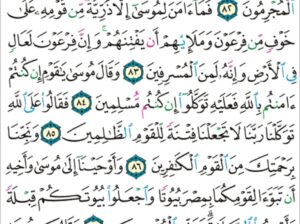 ٱلۡمُجۡرِمُونَ ٨٢ فَمَآ ءَامَنَ لِمُوسَىٰٓ إِلَّا ذُرِّيَّةٞ مِّن قَوۡمِهِۦ عَلَىٰ
خَوۡفٖ مِّن فِرۡعَوۡنَ وَمَلَإِيْهِمۡ أَن يَفۡتِنَهُمۡۚ وَإِنَّ فِرۡعَوۡنَ لَعَالٖ
فِي ٱلۡأَرۡضِ وَإِنَّهُۥ لَمِنَ ٱلۡمُسۡرِفِينَ ٨٣ وَقَالَ مُوسَىٰ يَٰقَوۡمِ إِن كُنتُمۡ
ءَامَنتُم بِٱللَّهِ فَعَلَيۡهِ تَوَكَّلُوٓاْ إِن كُنتُم مُّسۡلِمِينَ ٨٤ فَقَالُواْ عَلَى ٱللَّهِ
تَوَكَّلۡنَا رَبَّنَا لَا تَجۡعَلۡنَا فِتۡنَةٗ لِّلۡقَوۡمِ ٱلظَّٰلِمِينَ ٨٥ وَنَجِّنَا
بِرَحۡمَتِكَ مِنَ ٱلۡقَوۡمِ ٱلۡكَٰفِرِينَ ٨٦ وَأَوۡحَيۡنَآ إِلَىٰ مُوسَىٰ وَأَخِيهِ
أَن تَبَوَّءَا لِقَوۡمِكُمَا بِمِصۡرَ بُيُوتٗا وَٱجۡعَلُواْ بُيُوتَكُمۡ قِبۡلَةٗ